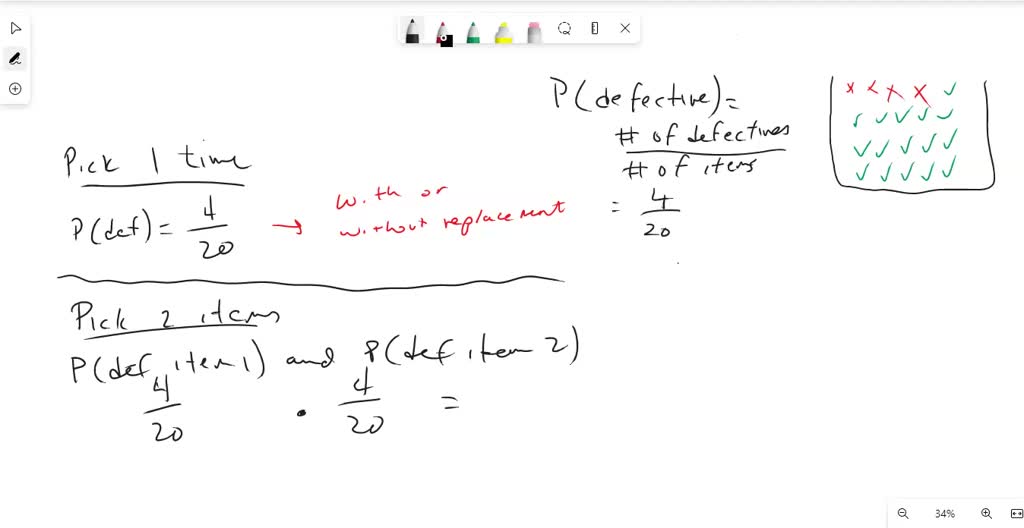 Pick 1 time
P(def) = 4/20 → with or
without replacement
Pick 2 items
P(def item 1) and P(def item 2)
4/20 · 4/20 =
P(defective) =
# of defectives
# of items
= 4/20
x x x x ✓
✓ ✓ ✓ ✓ ✓
✓ ✓ ✓ ✓ ✓
✓ ✓ ✓ ✓ ✓
34%